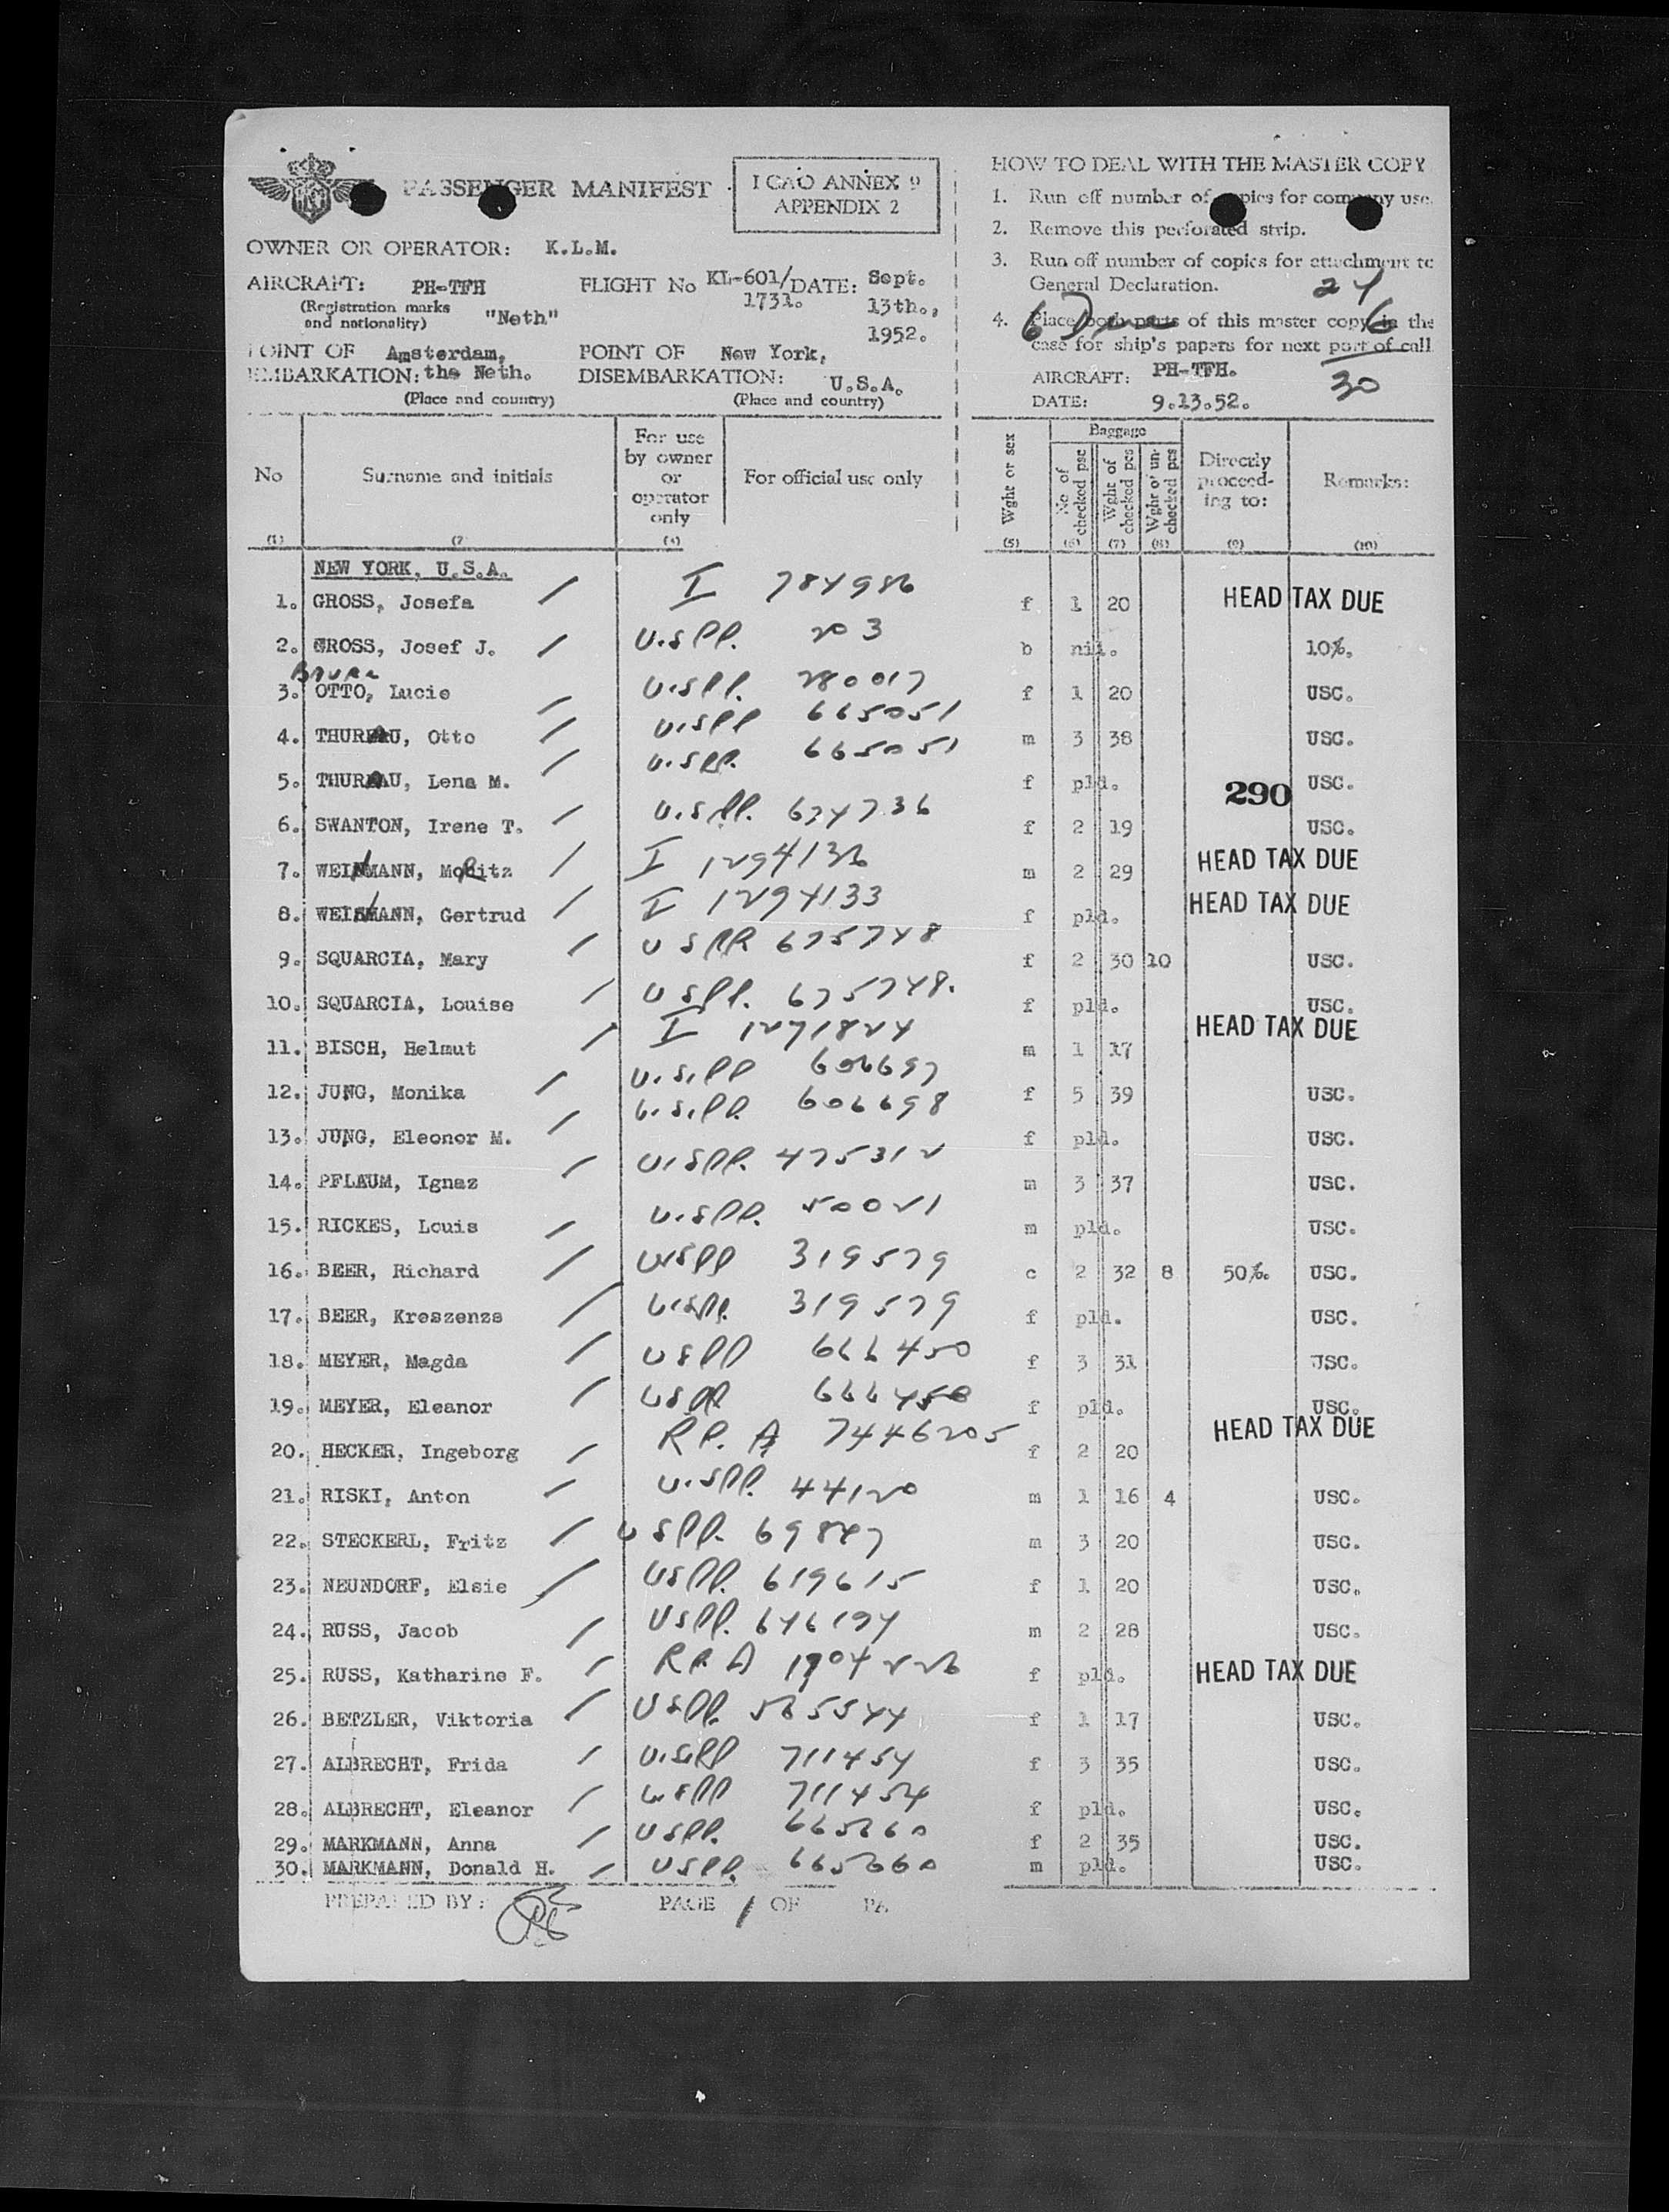 PASSENGER MANIFEST
ICAO ANNEX 9
APPENDIX 2
OWNER OR OPERATOR: K.L.M.
AIRCRAFT: PH-TFH FLIGHT No KL-601/ DATE: Sept.
1731. 13th.,
(Registration marks
and nationality) "Neth" 1952.
POINT OF Amsterdam, POINT OF New York,
EMBARKATION: the Neth. DISEMBARKATION: U.S.A.
(Place and country) (Place and country)
HOW TO DEAL WITH THE MASTER COPY
1. Run off number of copies for company use.
2. Remove this perforated strip.
3. Run off number of copies for attachment to
General Declaration. 24
4. Place both parts of this master copy in the 6 Due 6
case for ship's papers for next port of call
AIRCRAFT: PH-TFH. 30
DATE: 9.13.52.
No Surname and initials For use by owner or operator only For official use only Wght or sex Baggage No of checked psc Wght of checked pcs Wght of un-checked pcs Directly proceed-ing to: Remarks:
(1) (2 (4) (5) (6) (7) (8) (9) (10)
NEW YORK, U.S.A.
1. GROSS, Josefa / I 784986 f 1 20 HEAD TAX DUE
2. GROSS, Josef J. / U.S.PP. 203 b nil. 10%.
3. OTTO, Lucie U.S.PP. 280017 f 1 20 USC.
4. THUREAU, Otto / U.S.PP 665051 m 3 38 USC.
5. THURAU, Lena M. / U.S.PP. 665051 f pld. 290 USC.
6. SWANTON, Irene T. / U.S.PP. 674736 f 2 19 USC.
7. WEINMANN, Moritz / I 1294132 m 2 29 HEAD TAX DUE
8. WEINMANN, Gertrud / I 1294133 f pld. HEAD TAX DUE
9. SQUARCIA, Mary / U S PP 675748 f 2 30 10 USC.
10. SQUARCIA, Louise / U S PP. 675748. f pld. USC.
11. BISCH, Helmut / I 1271824 m 1 17 HEAD TAX DUE
12. JUNG, Monika / U.S.PP 606697 f 5 39 USC.
13. JUNG, Eleonor M. / U.S.PP. 606698 f pld. USC.
14. PFLAUM, Ignaz / U.S.PP. 475312 m 3 37 USC.
15. RICKES, Louis / U.S.PP. 50021 m pld. USC.
16. BEER, Richard / USPP 319579 c 2 32 8 50%. USC.
17. BEER, Kreszenze / U.S.PP. 319579 f pld. USC.
18. MEYER, Magda / USPP 666450 f 3 31 USC.
19. MEYER, Eleanor / USPP 666450 f pld. USC.
20. HECKER, Ingeborg / RP. A 7446205 f 2 20 HEAD TAX DUE
21. RISKI, Anton / U.SPP. 44120 m 1 16 4 USC.
22. STECKERL, Fritz / USPP. 69847 m 3 20 USC.
23. NEUNDORF, Elsie / USPP. 619615 f 1 20 USC.
24. RUSS, Jacob / USPP. 646194 m 2 28 USC.
25. RUSS, Katharine F. / RP. A 1904226 f pld. HEAD TAX DUE
26. BETZLER, Viktoria / USPP. 565544 f 1 17 USC.
27. ALBRECHT, Frida / U.SPP 711454 f 3 35 USC.
28. ALBRECHT, Eleanor / USPP 711454 f pld. USC.
29. MARKMANN, Anna / USPP. 665660 f 2 35 USC.
30. MARKMANN, Donald H. / USPP. 665660 m pld. USC.
PREPARED BY: PAGE 1 OF PA